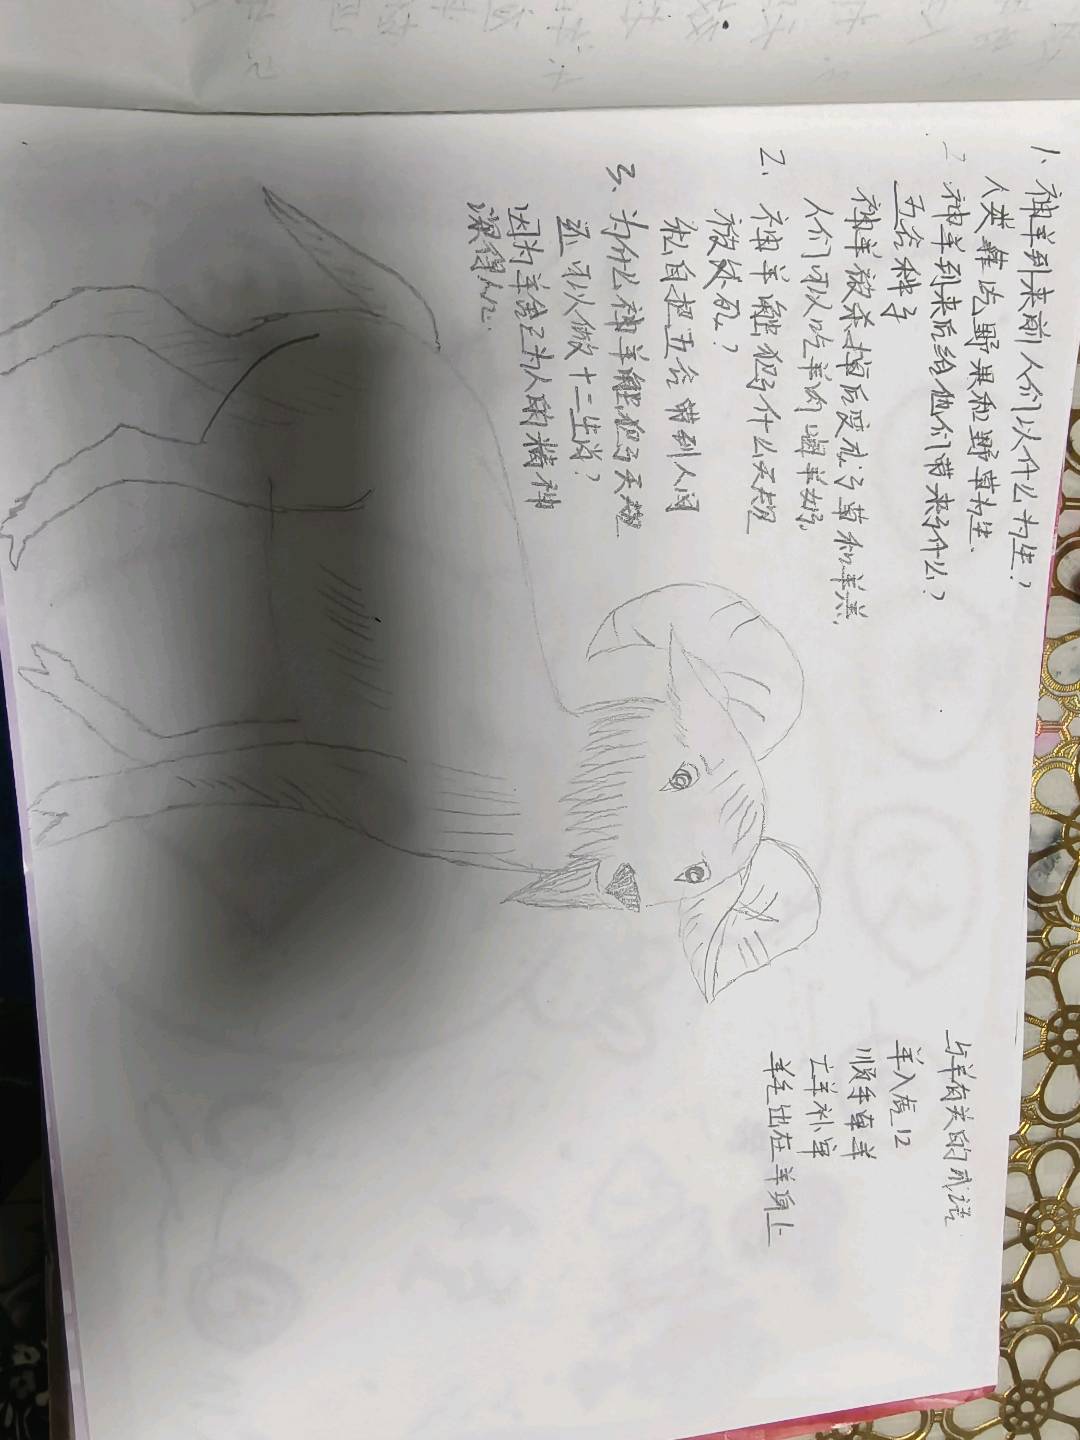 1、神羊到来前人们以什么为生？
人类靠吃野果和野草为生、
2 神羊到来后给他们带来了什么？
五谷种子
神羊被杀掉后变成了草和羊羔，
人们可以吃羊肉喝羊奶，
2、神羊触犯了什么天规
被处死？
私自把五谷带到人间
3、为什么神羊触犯了天规
还可以做十二生肖？
因为羊舍己为人的精神
深得人心
与羊有关的成语
羊入虎口
顺手牵羊
亡羊补牢
羊毛出在羊身上